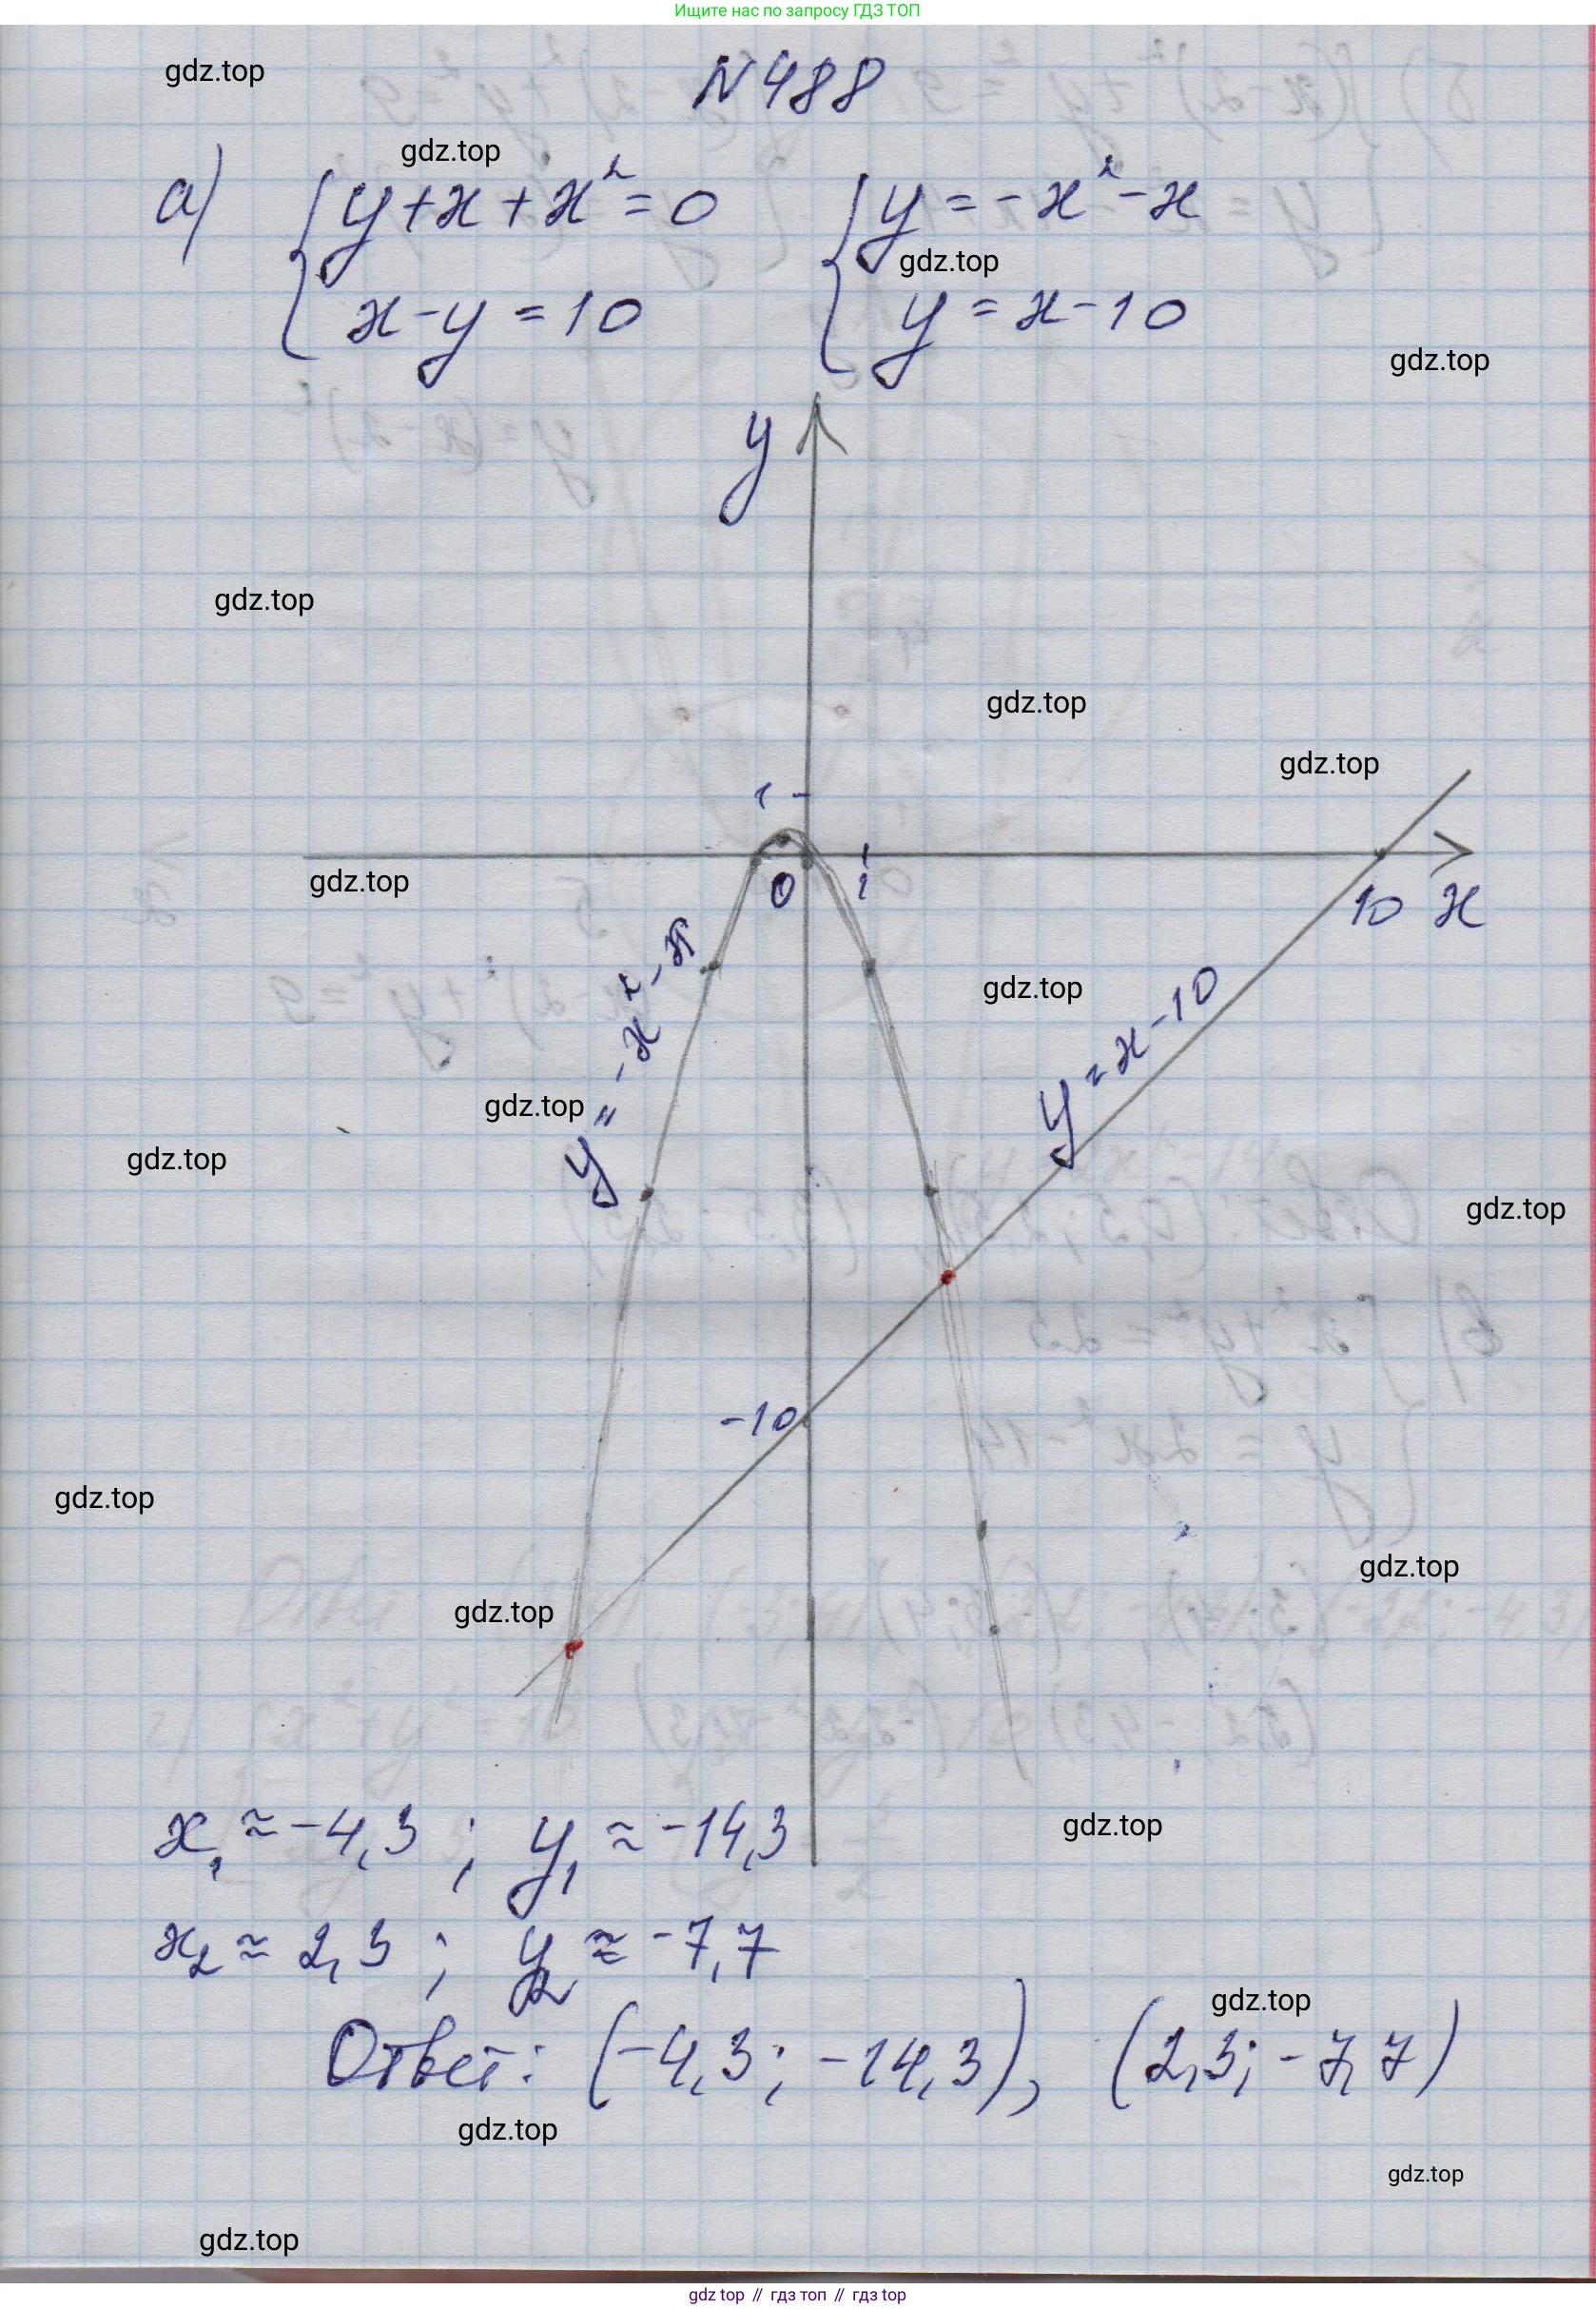 Ищите нас по запросу ГДЗ ТОП
gdz.top
N 488
gdz.top
а) { y + x + x² = 0 { y = -x² - x
gdz.top
x - y = 10 y = x - 10
gdz.top
y
gdz.top
gdz.top
gdz.top
1
gdz.top
0 1
10 x
y = -x² - x
gdz.top
y = x - 10
gdz.top
gdz.top
gdz.top
-10
gdz.top
gdz.top
gdz.top
x₁ ≈ -4,3 ; y₁ ≈ -14,3
gdz.top
x₂ ≈ 2,3 ; y₂ ≈ -7,7
gdz.top
Ответ: (-4,3; -14,3), (2,3; -7,7)
gdz.top
gdz.top
gdz.top
gdz top // гдз топ // гдз top